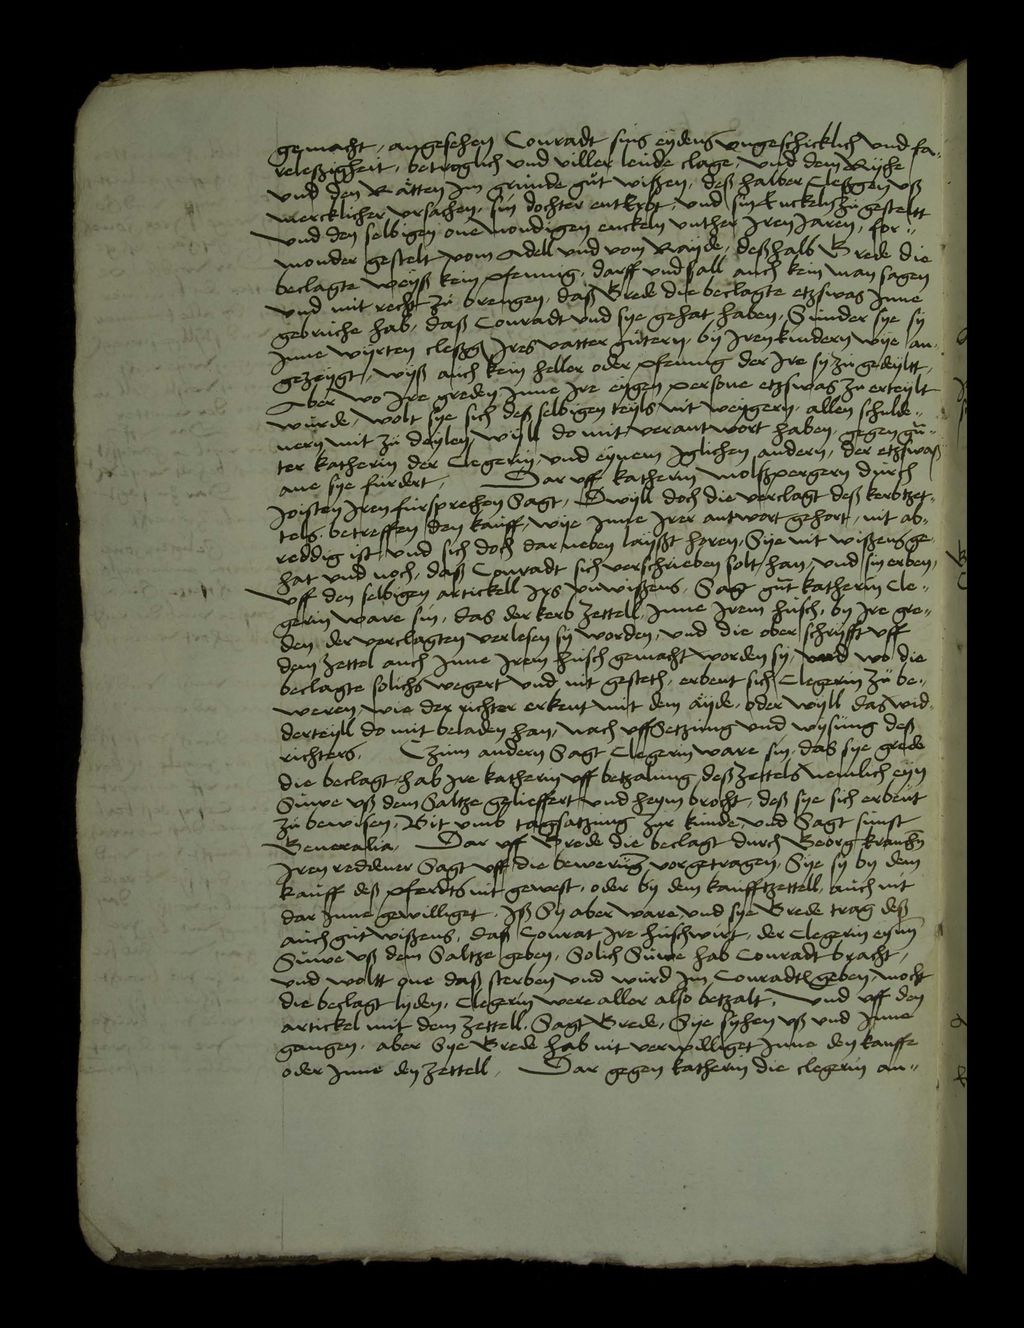 gemacht, angesehen Conradt sins eydens ungeschicklich und fa-
releßigheit, betroglich und viller leude clage, und dem Ryche
und den Rätten im grunde gut wißen, deß halber Cleßgen uß
mercklicher ursachen, sin dochter enterbt, und sin Enckeln zugestelt
und den selbigen one mondigen enckeln unther Iren Jaren, for-"
monder gestelt vom Adell und vom Rayde, deßhalb Grede die
beclagte weyß kein pfennig, darff und sall auch kein man sagen
und mit recht zu brengen, daß Grede die beclagte etzswas Inne
gebruche hab, daß Conradt und sye gehat haben, Sunder sye sy
Inne wyrten cleßg Ires vatter gutern, by Iren kindern wye an-
gezeygt, wyß auch kein heller oder pfennig der Ire sy zu gedeyltt,
Aber wo Ire greden Inne Ire eygen persone etzswas zu erteylt
wurde, wolt sye sich deß selbigen teyls nit weygern, allen schulde-"
nern mit zu deylen, wyll do mit verantwort haben, gegen gu-"
ter katherin der Clegerin, und eynem Iglichen andern, der etzswaß
ane sye furdert, Dar uff katherin molßpergern durch
Joisten Iren fursprechen Sagt, Dwyll doch die verclagt deß kerbtzet-
tels, betreffen den kauff, wye Inne Irer antwort gehort, nit ab-
reddig ist, und sich doch dar neben laysßt horen, Sye nit wißens ge-
hat und noch, daß Conradt sich verschrieben solt han, und sin erben,
uff den selbigen artickell Irs unwißens, Sag gut katherin Cle-"
gerin ware sin, das der kerb zettell, Inne Irem husch, by Ire gre-"
den der verclagten verlesen sy worden, und die ober schryfft uff
dem zettel auch Inne Irem husch gemacht worden sy, und wo die
beclagte solichs wegert und nit gesteth, erbeut sich Clegerin zu be-"
weren, wie der richter erkent mit dem äyde, oder wyll das wid-
derteyll do mit beladen han, nach uffsetzung und wysung deß
richters, Zum andern Sagt Clegerin ware sin, das sye grede
die beclagt, hab Ire katherin uff betzalung deß zettels nemlich eyn
Suwe uß dem Saltze gelieffert und heym brocht, deß sye sich erbeut
zu bewisen, Bit umb tagsatzung zur kunde, und Sagt sunst
Generalia, Dar uff Grede die beclagt durch Georg
Iren reddener Sagt uff die bewerung vorgetragen, Sye sy by dem
kauff deß pferdts nit gewest, oder by dem kaufftzettell, auch nit
dar Inne gewilliget, Iß Sy aber ware, und sye Grede trag deß
auch gut wißens, das Conrat Ire huschwirt, der Clegerin eynn
Suwe uß dem Saltze geben, Solich Suwe hab Conradt bracht,
und woltt one daß sterben und wurd Im Conradt geben, mocht
die beclagt lyden, Clegerin were aller also betzalt, Und uff den
artickel mit dem zettell, Sagt Grede, Sye syhen uß und Inne
gangen, aber Sye Grede hab nit verwilliget Inne den kauffe
oder Inne den zettell, Dar gegen katherin die clegerin an-"